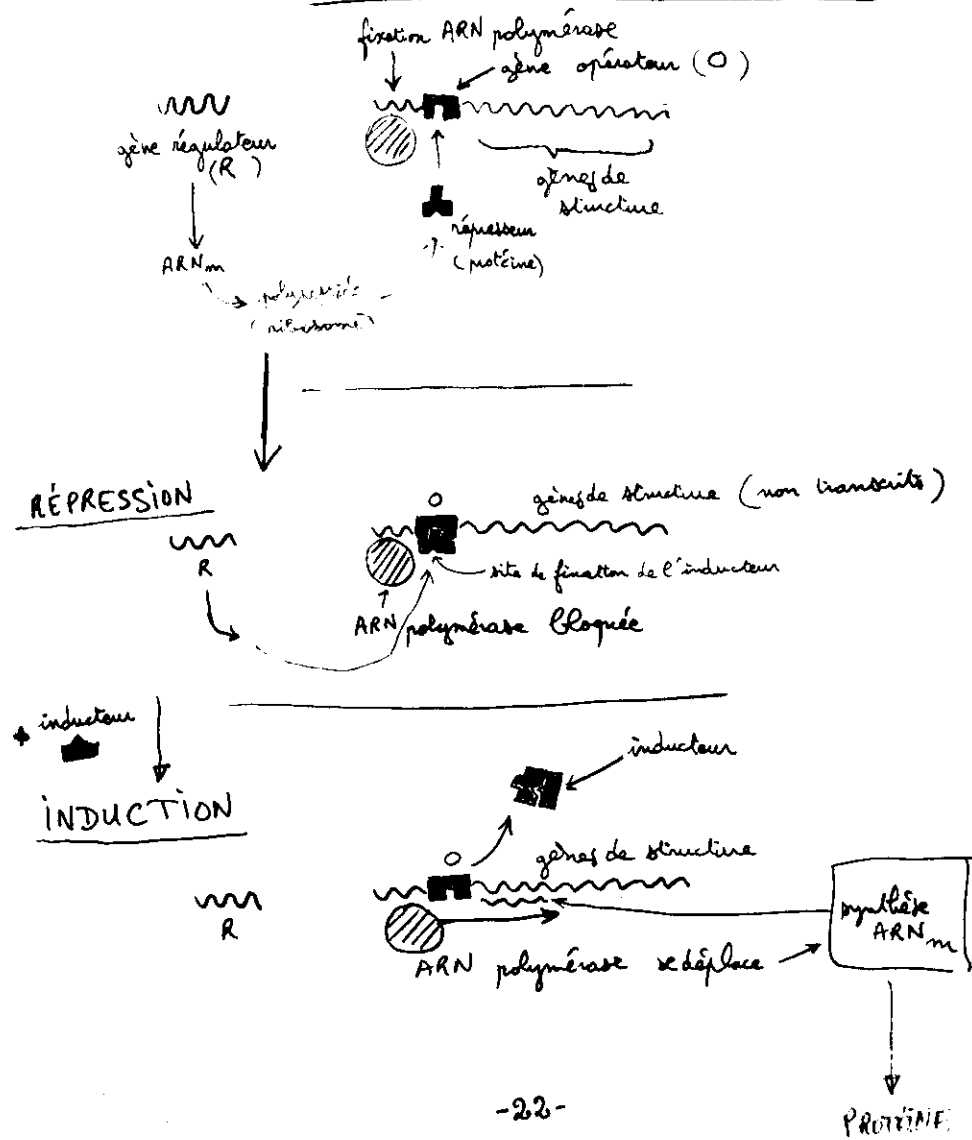 fixation ARN polymérase
gène opérateur (O)
gène régulateur
(R)
gènes de
structure
répresseur
(protéine)
ARNm
(ribosome)
RÉPRESSION
O
gènes de structure (non transcrits)
R
site de fixation de l'inducteur
ARN polymérase bloquée
+ inducteur
inducteur
INDUCTION
O
gènes de structure
R
synthèse
ARNm
ARN polymérase se déplace
-22-
PROTÉINE